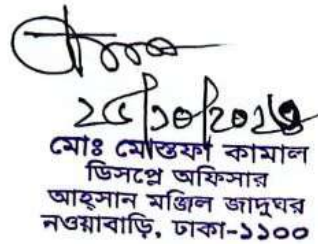 মোঃ মোস্তফা কামাল
ডিসপ্লে অফিসার
আহসান মঞ্জিল জাদুঘর
নওয়াবাড়ি, ঢাকা-১১০০